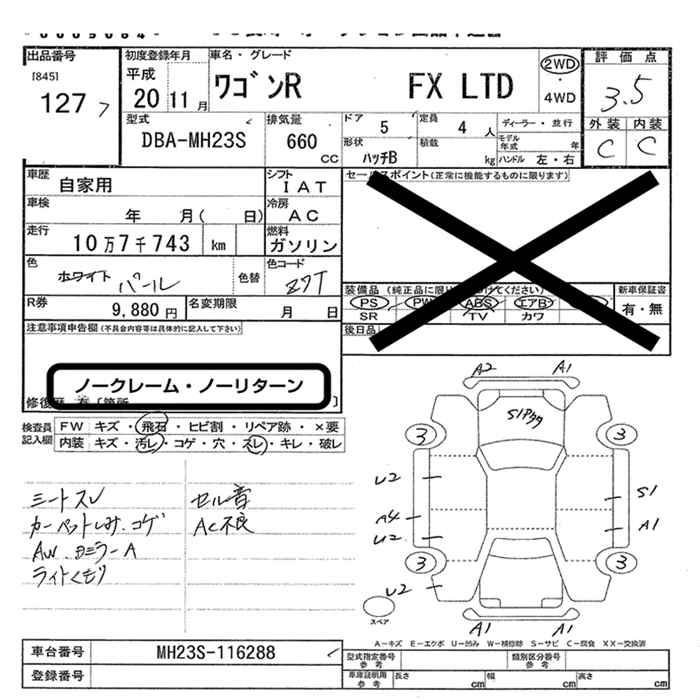 出品番号
[845]
1277
初度登録年月
平成
20 11 月
車名・グレード
ワゴンR FX LTD
2WD
・
4WD
評価点
3.5
外装 内装
C C
型式
DBA-MH23S
排気量
660
CC
ドア 5
定員 4 人
ディーラー・並行
形状 ハッチB
積載 kg
モデル年式 年
ハンドル 左・右
車歴 自家用
シフト IAT
車検 年 月( 日)
冷房 AC
走行 10万7千743 km
燃料 ガソリン
色 ホワイト パール
色替
色コード Z7T
R券 9,880 円
名変期限 月 日
セールスポイント(正常に機能するものに限ります)
装備品
PS PW ABS エアB
SR TV カワ
新車保証書
有・無
後日品
注意事項申告欄(不具合内容等は具体的に記入して下さい)
ノークレーム・ノーリターン
検査員記入欄
FW キズ・飛石・ヒビ割・リペア跡・×要
内装 キズ・汚レ・コゲ・穴・スレ・キレ・破レ
シートスレ
カーペットしみ・コゲ
AW・ミラーA
ライトくもり
セル音
AC不良
A2 A1
3 3
U2
S1
A4
A1
U2
3 3
U2
A1 A1
スペア
A-キズ E-エクボ U-凹み W-補修跡 S-サビ C-腐食 XX-交換済
車台番号 MH23S-116288
登録番号
型式指定番号 参考
類別区分番号 参考
車庫証明用 参考
長さ cm
幅 cm
高さ cm